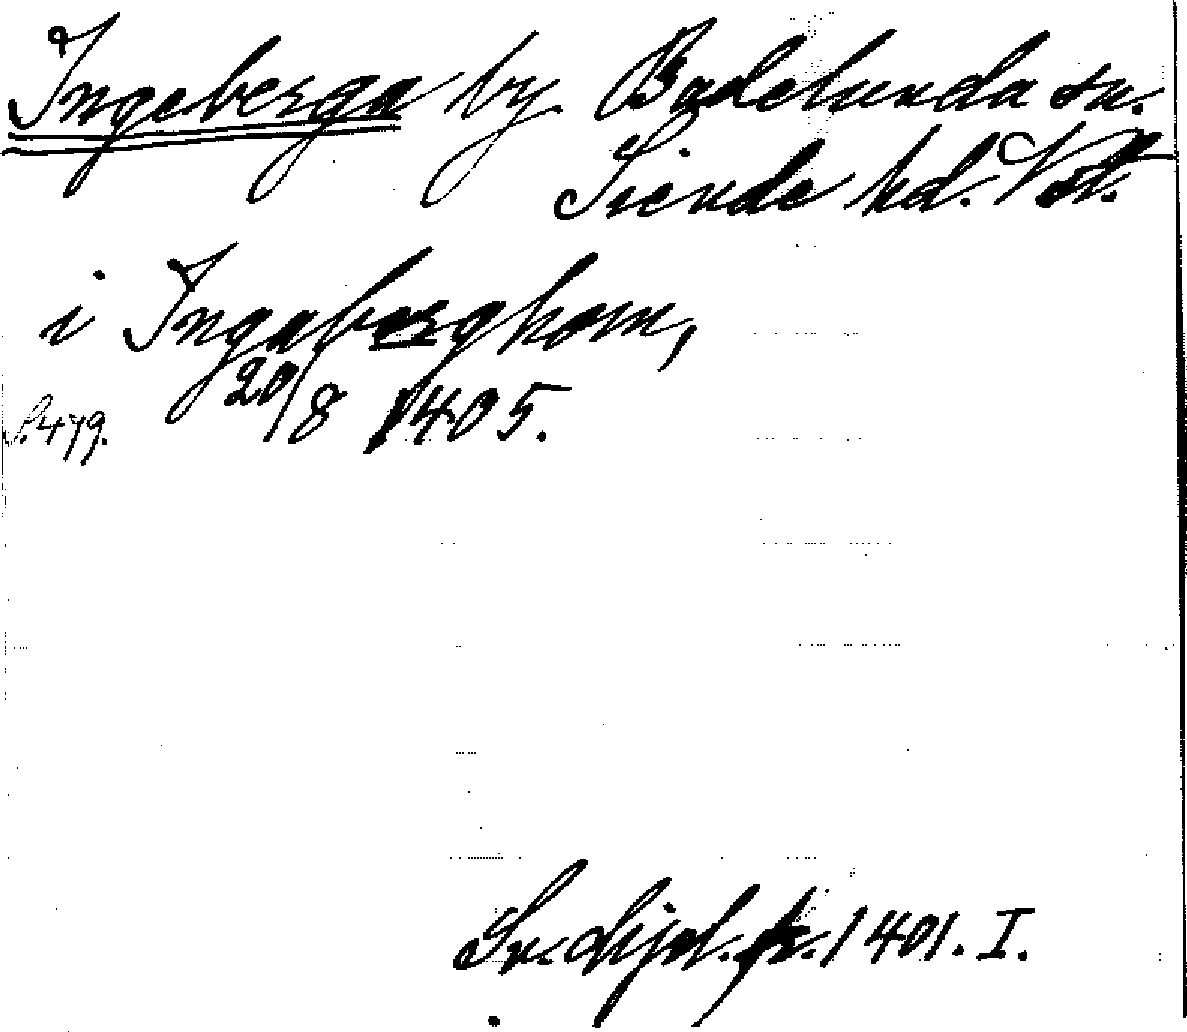 Ingeberga by Badelunda sn.
Siende hd. Vstm.
i Ingaberghom,
20/8 1405.
S. 479.
Sv. dipl. fr. 1401. I.